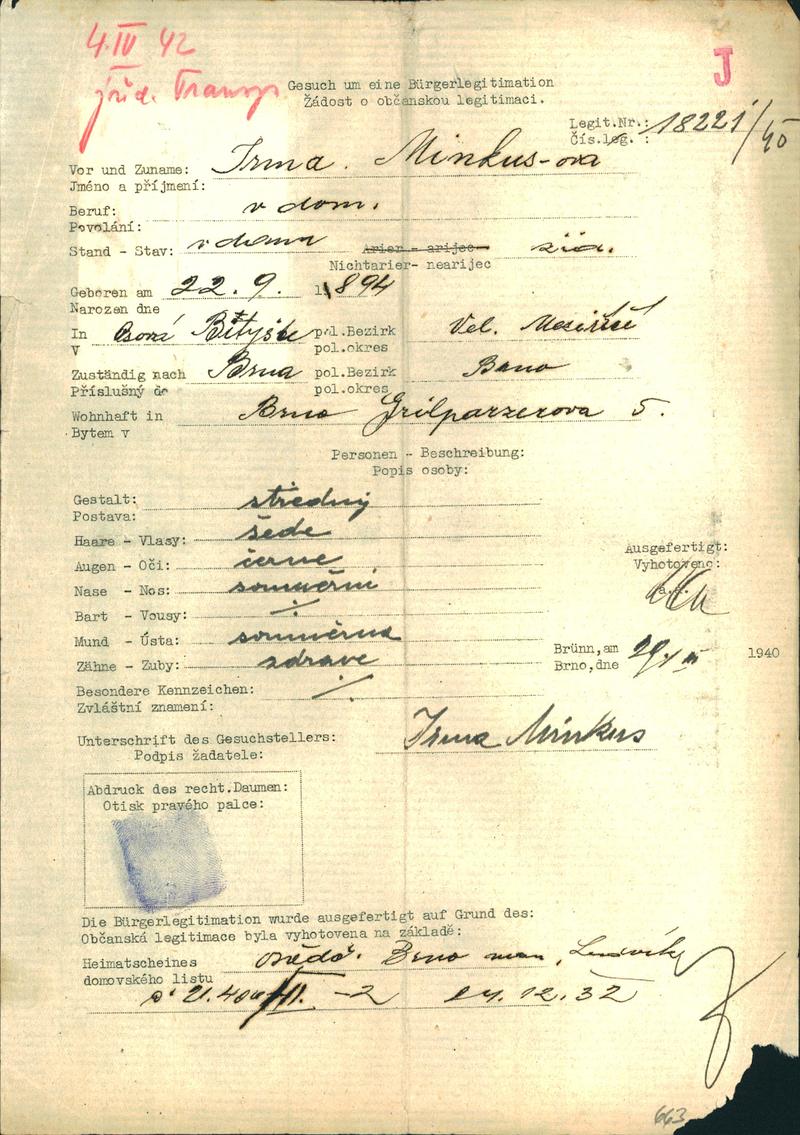 4.IV 42
žid. Transp.
J
Gesuch um eine Bürgerlegitimation
Žádost o občanskou legitimaci.
Legit.Nr.: 18221/40
Čís.leg. :
Vor und Zuname: Irma Minkus-ova
Jméno a příjmení:
Beruf: v dom.
Povolání:
Stand - Stav: vdaná Arier - arijec žid.
Nichtarier- nearijec
Geboren am 22. 9. 1894
Narozen dne
In Osová Bítýška pol.Bezirk Vel. Meziříčí
V pol.okres
Zuständig nach Brna pol.Bezirk Brno
Příslušný do pol.okres
Wohnhaft in Brno Grilparzerova 5.
Bytem v
Personen - Beschreibung:
Popis osoby:
Gestalt: střední
Postava:
Haare - Vlasy: šedé
Augen - Oči: černé
Nase - Nos: souměrní
Bart - Vousy: ./.
Mund - Ústa: souměrná
Zähne - Zuby: zdravé
Besondere Kennzeichen: ./.
Zvláštní znamení:
Ausgefertigt:
Vyhotoveno:
Brünn,am 1940
Brno,dne
Unterschrift des Gesuchstellers: Irma Minkus
Podpis žadatele:
Abdruck des recht.Daumen:
Otisk pravého palce:
Die Bürgerlegitimation wurde ausgefertigt auf Grund des:
Občanská legitimace byla vyhotovena na základě:
Heimatscheines Brno Ludvík
domovského listu
-2 12. 32
663